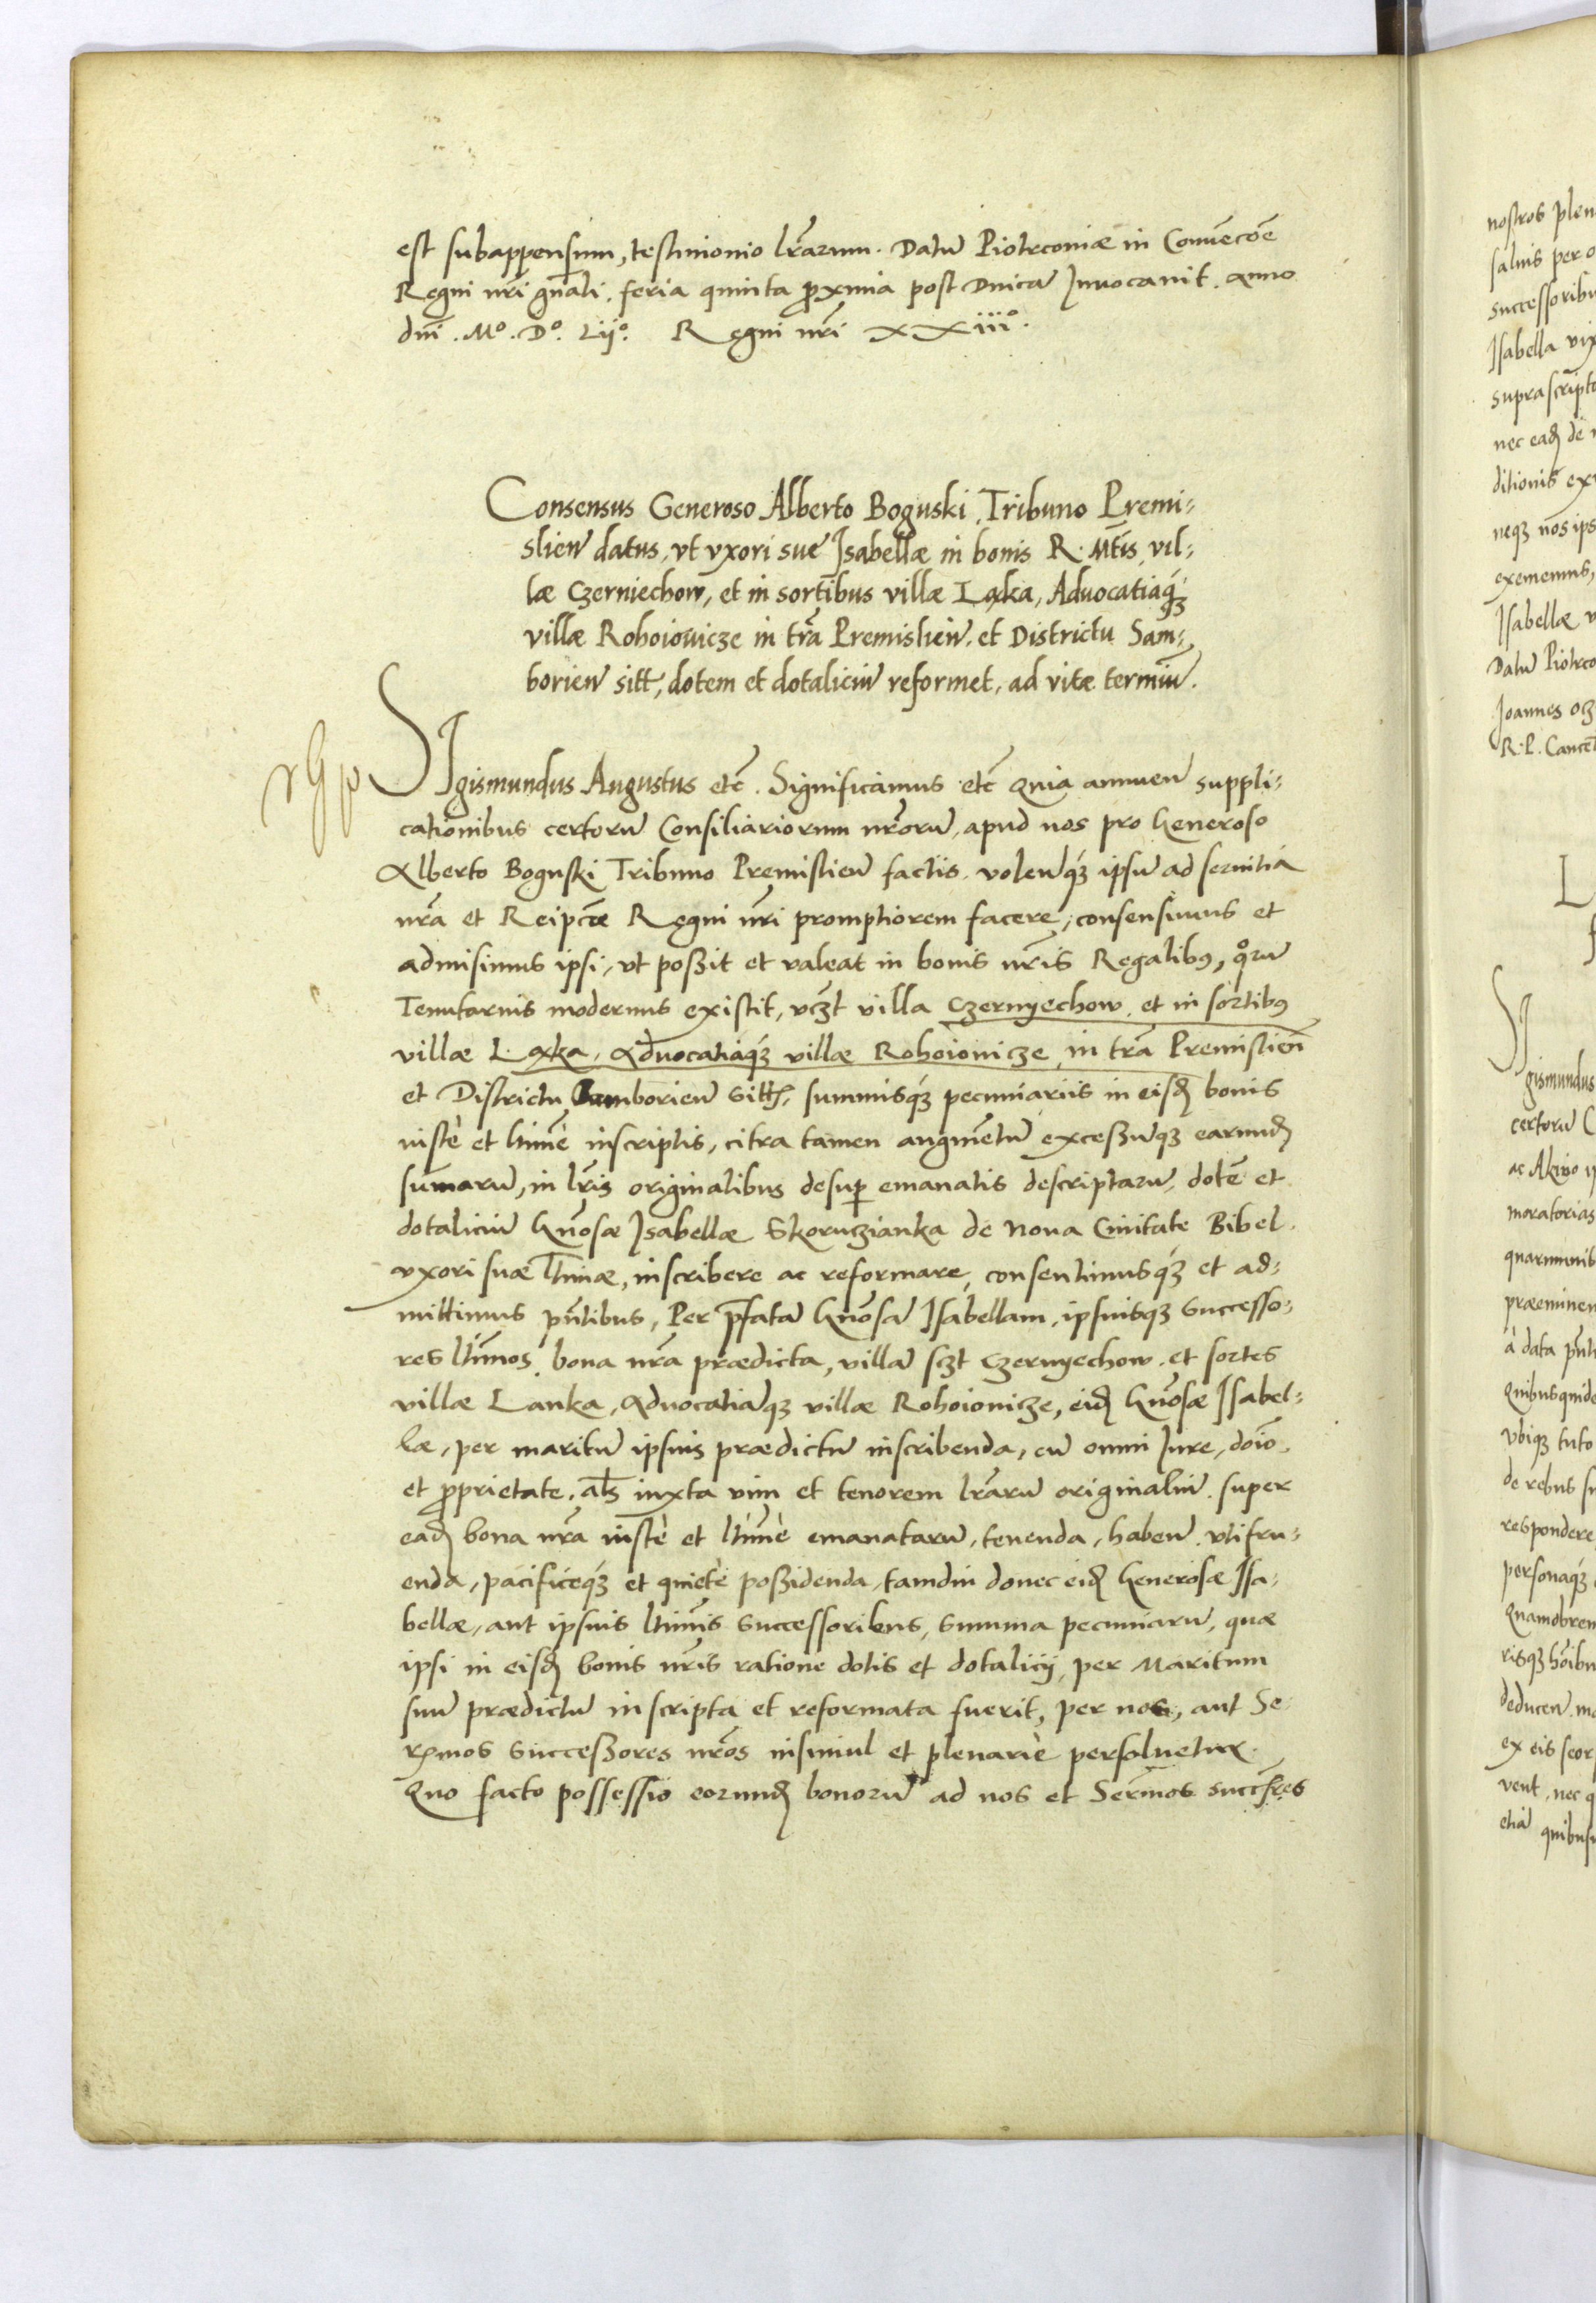 est subappensum, testimonio lrarum. Datũ Piotrconiæ in Conuẽcõe
Regni nri gnali, feria quinta proxima post Dnicã Inuocauit. anno
dni. Mº. Dº. Lijº. Regni nri xxiiiº.
Consensus Generoso Alberto Boguski, Tribuno Premi=
slien datus, vt vxori sue Isabellæ in bonis R. Mtis, vil=
læ Czerniechow, et in sortibus villæ Ląka, Aduocatiaq́ꝫ
villæ Rohoiouicze in trã Premislien. et Districtu Sam=
borien sitt, dotem et dotaliciũ reformet, ad vitæ termiũ.
SIgismundus Augustus etc. Significamus etc Quia annuen suppli=
cationibus certorũ Consiliariorum nrorũ, apud nos pro Generoso
Alberto Boguski Tribuno Premislien factis, volenq́ꝫ ipsũ ad seruitia
nra et Reipcæ Regni nri promptiorem facere, consensimus et
admisimus ipsi, vt poßit et valeat in bonis nris Regalibꝰ, qorũ
Tenutarius modernus existit, vczt villa Czernyechow, et in sortibꝰ
villæ Ląka, Aduocatiaq́ꝫ villæ Rohoiouicze, in trã Premislien
et Districtu Samborien sitt, summisq́ꝫ pecuniariis in eisdẽ bonis
iustè et ltimè inscriptis, citra tamen augmẽtũ exceßũqꝫ earundẽ
summarũ, in lris originalibus desuper emanatis descriptarũ, dotẽ et
dotaliciũ Gnosæ Isabellæ Skoruczianka de Noua Ciuitate Bibel.
vxori suæ ltimæ, inscribere ac reformare, consentimusq́ꝫ et ad=
mittimus pntibus, Per pfatã Gnosã Isabellam, ipsiusqꝫ Successo=
res ltimos, bona nra prædicta, villã sczt Czernyechow, et sortes
villæ Lanka, Aduocatiãqꝫ villæ Rohoiouicze, eidẽ Gnosæ Isabel=
læ, per maritũ ipsius prædictũ inscribenda, cũ omni Iure, doĩo,
et proprietate, als iuxta vim et tenorem lrarũ originaliũ, super
eadẽ bona nra iustè et ltimè emanatarũ, tenenda, haben. vtifru=
enda, pacificeq́ꝫ et quietè poßidenda, tamdiu donec eidẽ Generosæ Isa=
bellæ, aut ipsius ltimis Successoribus, Summa pecuniarũ, quæ
ipsi in eisdẽ bonis nris ratione dotis et dotalicij, per Maritum
suũ prædictũ inscripta et reformata fuerit, per nos, aut Se=
rẽmos Succeßores nros insimul et plenariè persoluetur.
Quo facto possessio eorundẽ bonorũ ad nos et Sermos succsres
nostros plen
saluis per o
Successoribu
Isabella vix
suprascripto
nec eadẽ de
ditionis ex
neqꝫ nos ips
exememus,
Isabellæ v
Datũ Piotrco
Joannes Ocz
R. P. Cancel
gismundus
certorũ C
moratorias
præeminen
à data pnt
Quibus quide
vbiqꝫ tuto
de rebus su
respondere
personaq́ꝫ
Quamobrem
risqꝫ hoibu
deducen. ma
ex eis seor
vent, nec q
etiã quibus